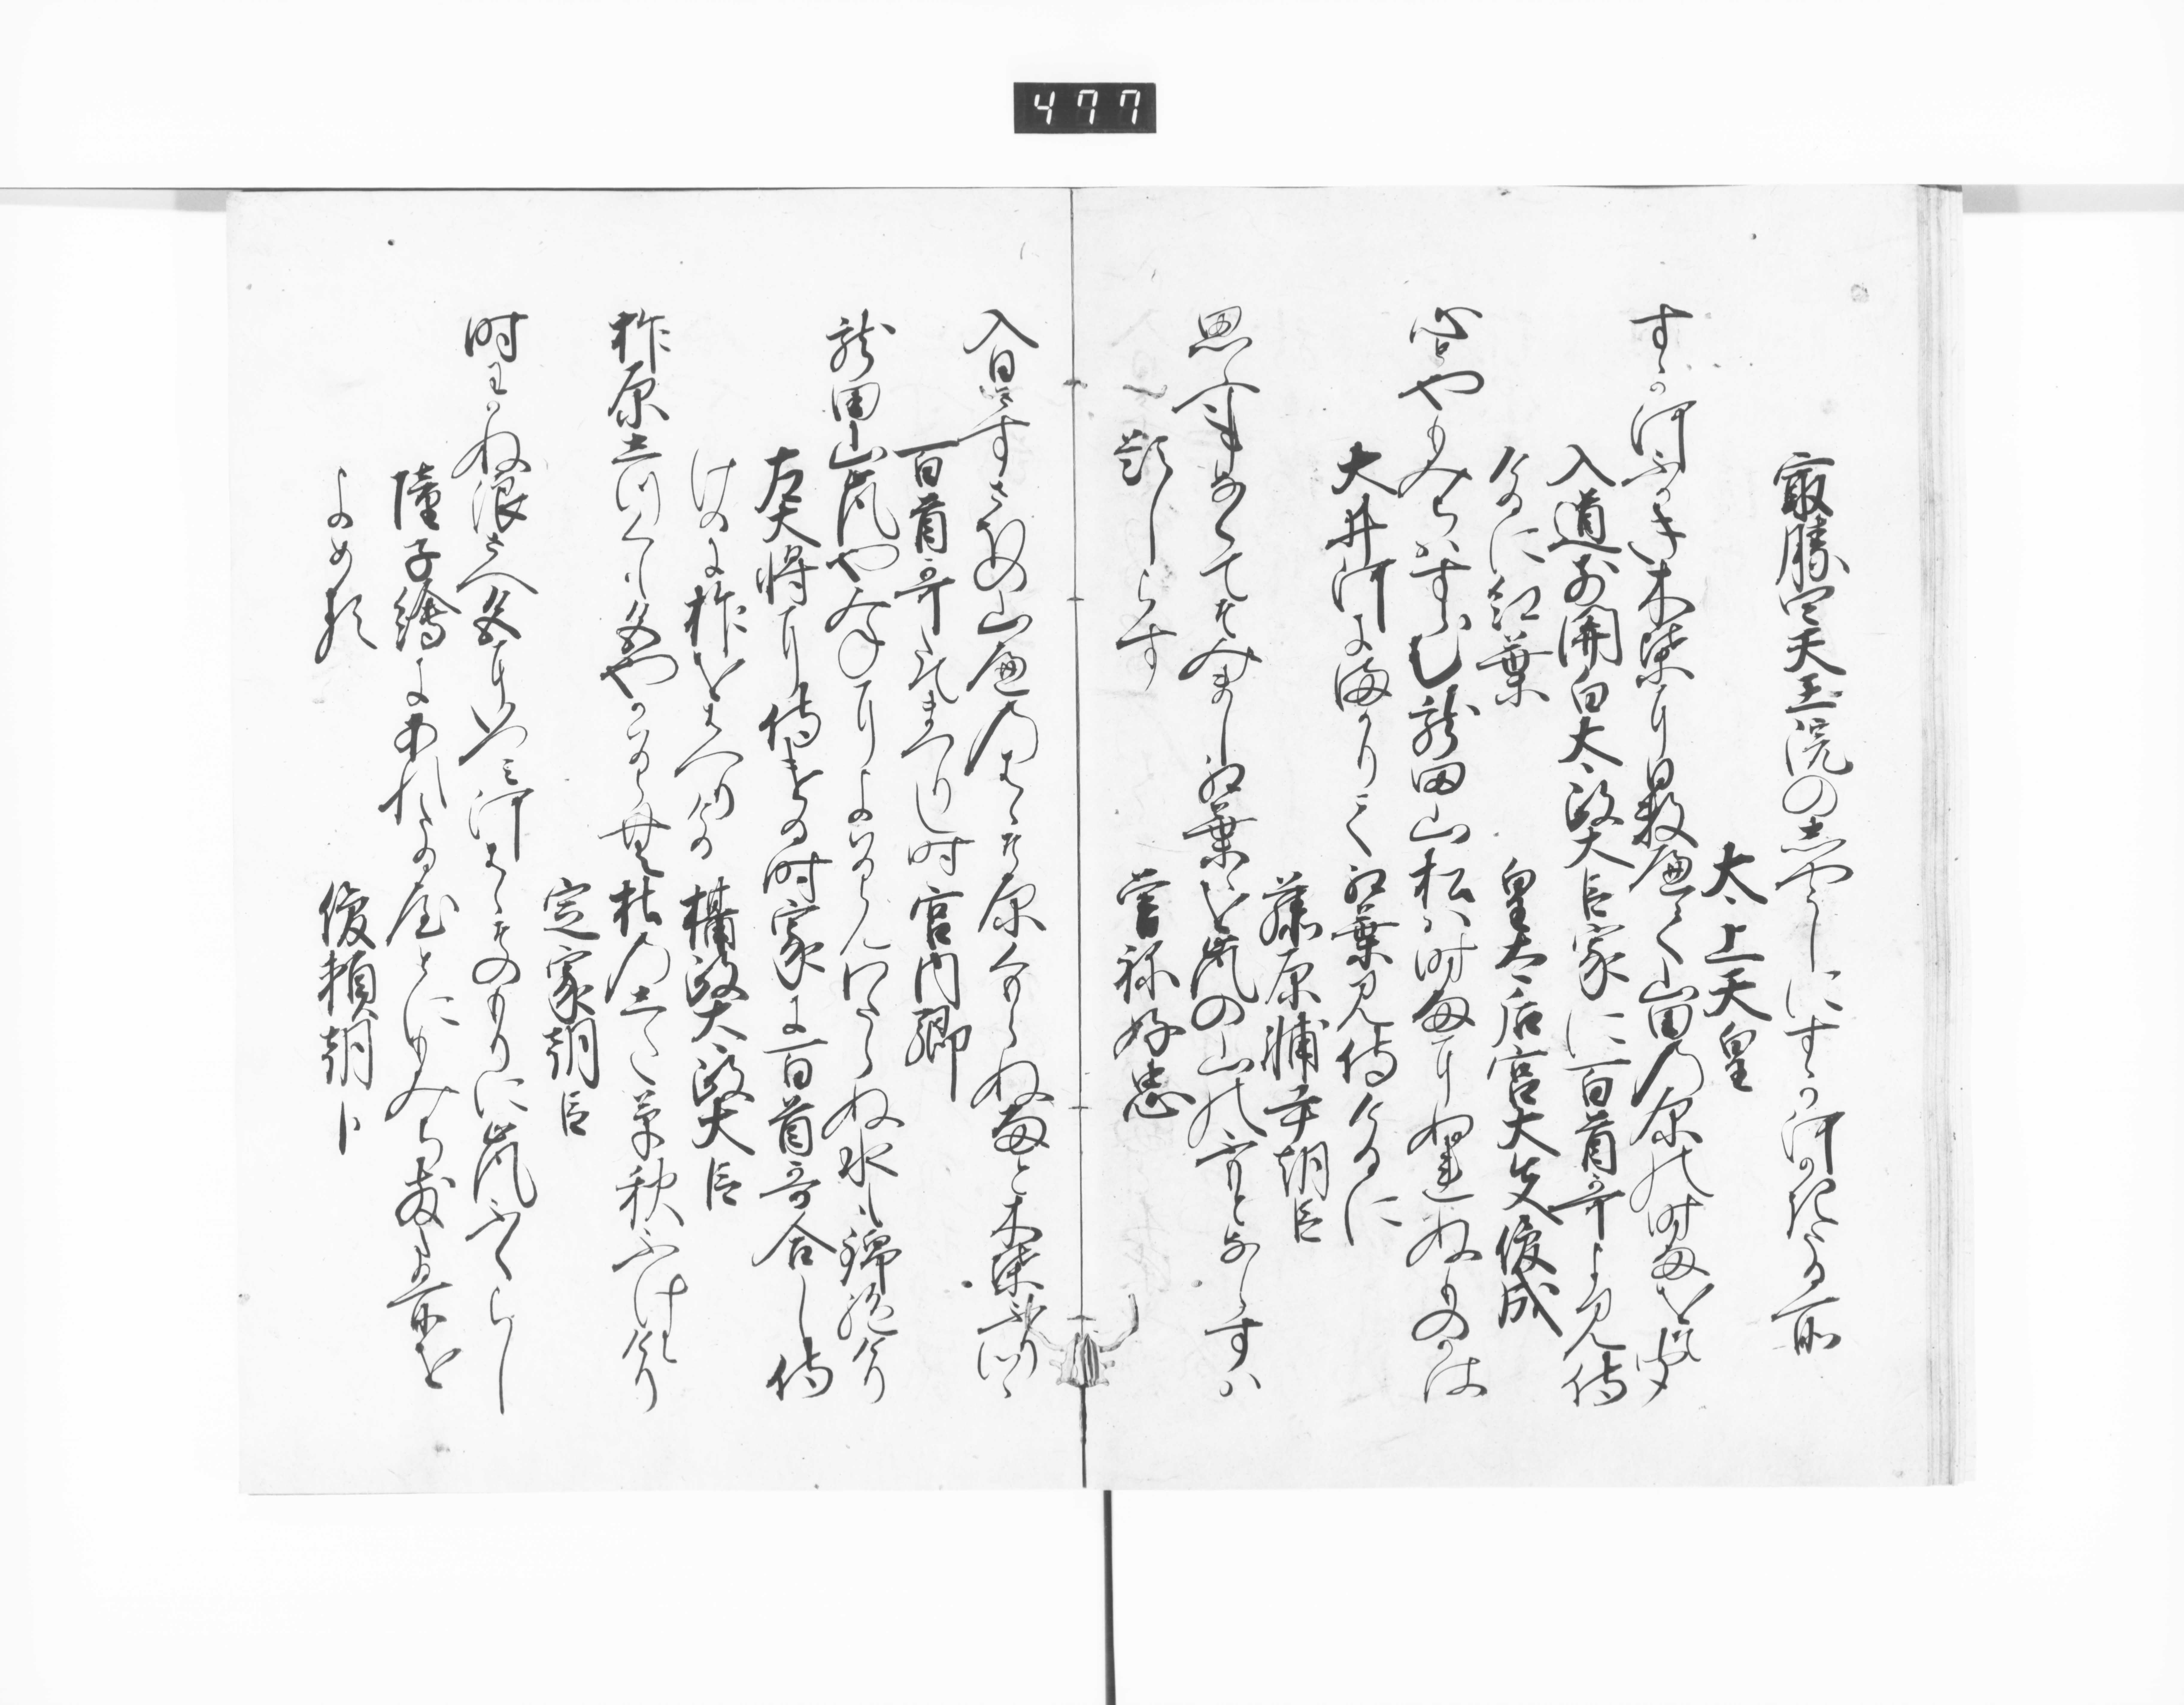 477
最勝四天王院の志やうしにすゝか河かきたる所
太上天皇
すゝか河ふかき木葉に日数へて山田の原の時雨をそ聞
入道前関白太政大臣家に百首哥よみ侍
けるに紅葉
皇太后宮大夫俊成
心とやもみちはすらむ龍田山松は時雨にぬれぬものかは
大井河にまかりて紅葉見侍けるに
藤原輔尹朝臣
思ふ事なくてそみまし紅葉はを嵐の山のふもとならすは
題しらす
曽祢好忠
入日さすさほの山辺のはゝそ原くもらぬ雨と木葉ふりつゝ
百首哥たてまつりし時
宮内卿
龍田山嵐や峯によはるらんわたらぬ水も錦絶けり
左大将に侍ける時家に百首哥合し侍
けるに柞をよみける
摂政太政大臣
柞原しつくも色やかはるらむ杜の下草秋ふけにけり
定家朝臣
時わかぬ浪さへ色にいつみ河はゝその杜に嵐ふくらし
障子絵にあれたる屋とにもみち散たる所を
よめる
俊頼朝臣